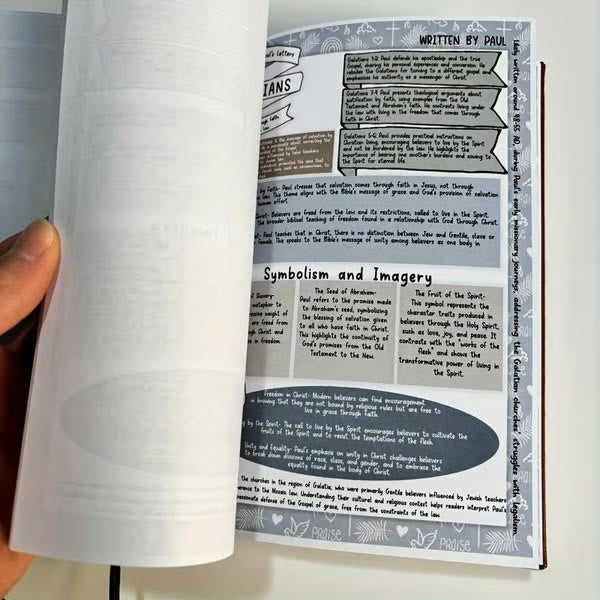 WRITTEN BY PAUL
Paul's letters
IANS
Galatians 1-2: Paul defends his apostleship and the true
Gospel, sharing his personal experiences and conversion. He
rebukes the Galatians for turning to a different gospel and
emphasizes his authority as a messenger of Christ.
Galatians 3-4: Paul presents theological arguments about
justification by faith, using examples from the Old
Testament and Abraham's faith. He contrasts living under
the law with living in the freedom that comes through
faith in Christ.
Galatians 5-6: Paul provides practical instructions on
Christian living, encouraging believers to live by the Spirit
and not be burdened by the law. He highlights the
importance of bearing one another's burdens and sowing to
the Spirit for eternal life.
message of salvation by
about correcting the
of the Gospel
by false teachers
promoted the idea that
law, such as circumcision, to
by Faith- Paul stresses that salvation comes through faith in Jesus, not through
law. This theme aligns with the Bible's message of grace and God's provision of salvation
human effort.
Christ- Believers are freed from the law and its restrictions, called to live in the Spirit.
broader biblical teaching of freedom found in a relationship with God through Christ.
Paul teaches that in Christ, there is no distinction between Jew and Gentile, slave or
female. This speaks to the Bible's message of unity among believers as one body in
Symbolism and Imagery
of Slavery-
metaphor to
weight of
are freed from
through Christ and
in freedom.
The Seed of Abraham-
Paul refers to the promise made
to Abraham's seed, symbolizing
the blessing of salvation given
to all who have faith in Christ.
This highlights the continuity of
God's promises from the Old
Testament to the New.
The Fruit of the Spirit-
This symbol represents the
character traits produced in
believers through the Holy Spirit,
such as love, joy, and peace. It
contrasts with the "works of the
flesh" and shows the
transformative power of living in
the Spirit.
Freedom in Christ- Modern believers can find encouragement
in knowing that they are not bound by religious rules but are free to
live in grace through faith.
by the Spirit- The call to live by the Spirit encourages believers to cultivate the
fruits of the Spirit and to resist the temptations of the flesh.
Unity and Equality- Paul's emphasis on unity in Christ challenges believers
to break down divisions of race, class, and gender, and to embrace the
equality found in the body of Christ.
the churches in the region of Galatia, who were primarily Gentile believers influenced by Jewish teachers
adherence to the Mosaic law. Understanding their cultural and religious context helps readers interpret Paul's
passionate defense of the Gospel of grace, free from the constraints of the law.
likely written around 48-55 AD, during Paul's early missionary journeys, addressing the Galatian churches' struggles with legalism.
PRAISE
PRAISE